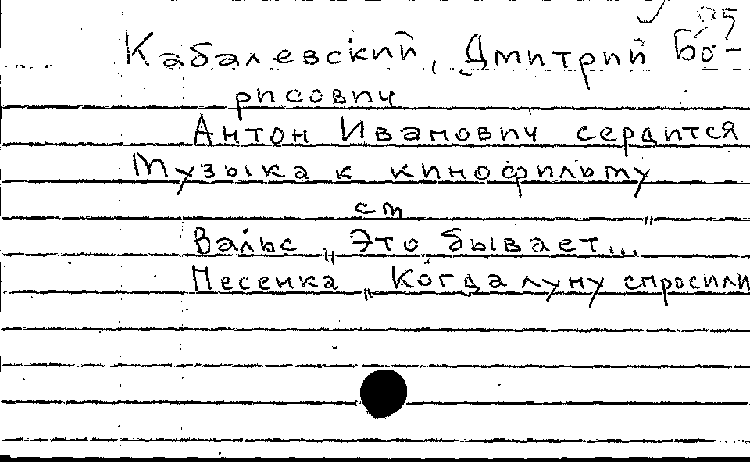 Кабалевский, Дмитрий Бо-
рисович
Антон Иванович сердится
Музыка к кинофильму
см
Вальс „Это бывает..."
Песенка „Когда луну спросили